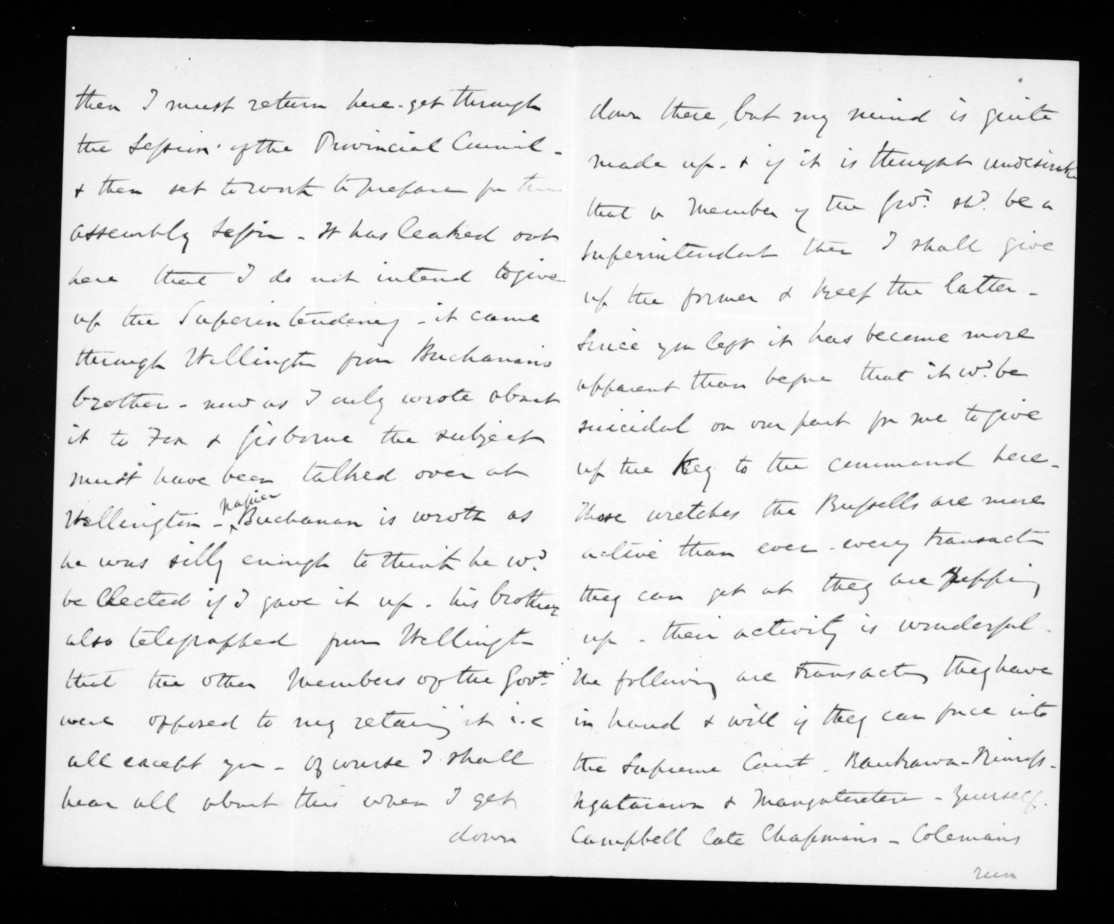 then I must return here - get through
the Session of the Provincial Council -
& then set to work to prepare for the
assembly Session - It has leaked out
here that I do not intend to give
up the Superintendency - it came
through Wellington from Buchanan's
brother - now as I only wrote about
it to Fox & Gisborne the subject
must have been talked over at
Napier
Wellington - Buchanan is wroth as
he was silly enough to think he wd.
be Elected if I gave it up - his brother
also telegraphed from Wellington
that the other Members of the Govt.
were opposed to my retaing it i.e
all except you - of course I shall
hear all about this when I get
down
down there, but my mind is quite
made up - & if it is thought undesirable
that a Member of the Govt. shd. be a
Superintendent then I shall give
up the former & keep the latter -
Since you left it has become more
apparent than before that it wd. be
suicidal on our part for me to give
up the Key to the command here -
Those wretches the Russells are more
active than ever - every transactn
they can get at they are
up - their activity is wonderful -
The following are transactns they have
in hand & will if they can force into
the Supreme Court - Raukawa -
Ngatarawa & Mangateretere - yourself -
Campbell late Chapmans - Colemans
run